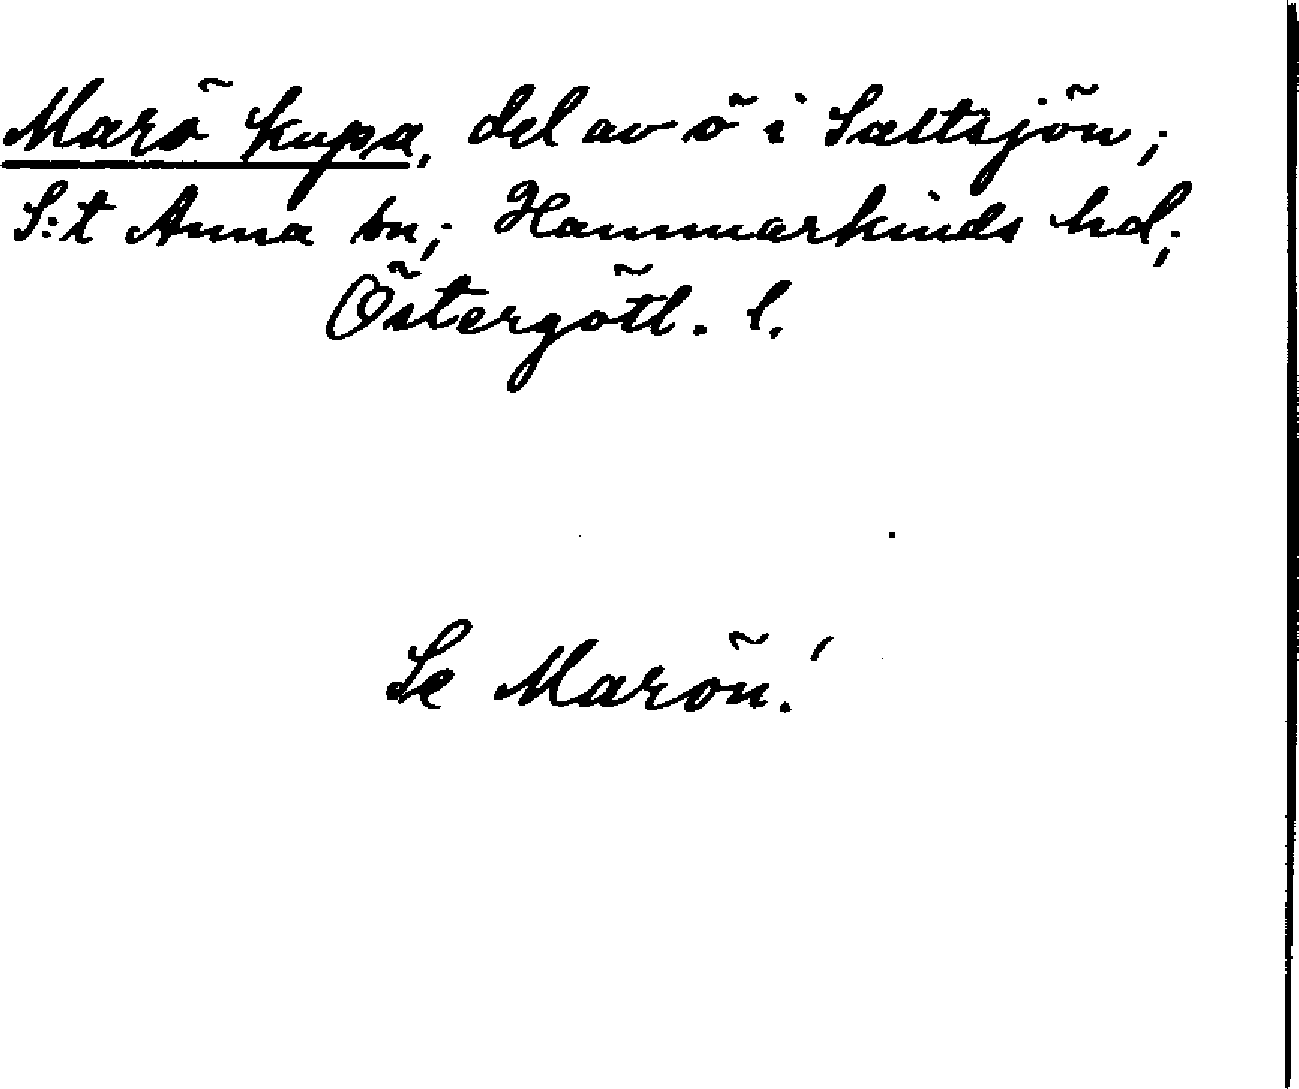 Marö kupa, del av ö i Saltsjön;
S:t Anna sn; Hammarkinds hd;
Östergötl. l.
Se Marön!